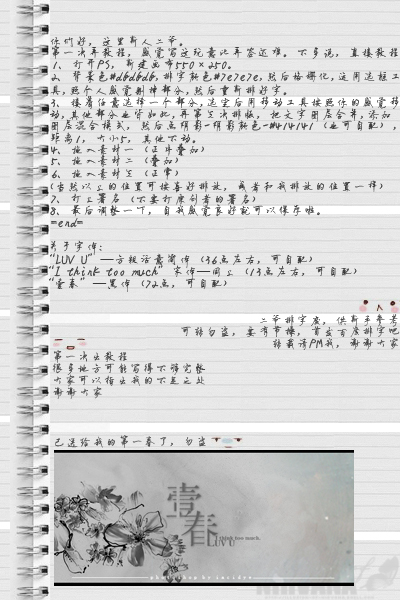 你们好，这里新人二爷。
第一次弄教程，感觉写这玩意儿弄容还难。不多说，直接教程
1、打开PS，新建画布550×250。
2、背景色#dbdbdb，排字颜色#7e7e7e，然后格栅化，选用选框工
具，照个人感觉删掉部分，然后重新排好字。
3、接着任意选择一个部分，选定后用移动工具按照你的感觉移
动，其他部分也皆如此，再第三次排版，把文字图层合并，添加
图层混合模式，然后点阴影-阴影颜色-#414141（也可自配），
距离1，大小5，其他不动。
4、拖入素材一（正片叠加）
5、拖入素材二（叠加）
6、拖入素材三（正常）
(当然以上的位置可按喜好排放，或者和我排放的位置一样)
7、打上署名（不要打原创者的署名）
8、最后调整一下，自我感觉良好就可以保存啦。
=end=
关于字体：
"LUV U"——方正活意简体（36点左右，可自配）
"I think too much" 字体——同上（13点左右，可自配）
"壹春"——黑体（72点，可自配）
二爷排字废，供新手参考
可转勿盗，要有节操，首发百度排字吧
转载请PM我，谢谢大家
第一次出教程
很多地方可能写得不够完整
大家可以指出我的不足之处
谢谢大家
已送给我的第一春了，勿盗
壹
春
LUV U
I think too much.